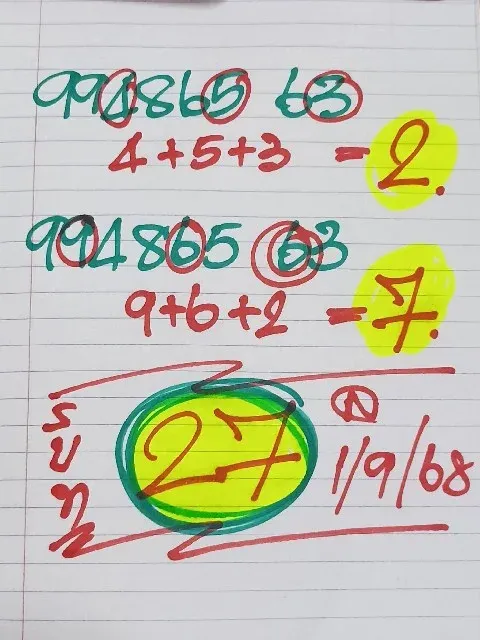 994865 63
4+5+3 = 2.
994865 63
9+6+2 = 7.
27
N
1/9/68